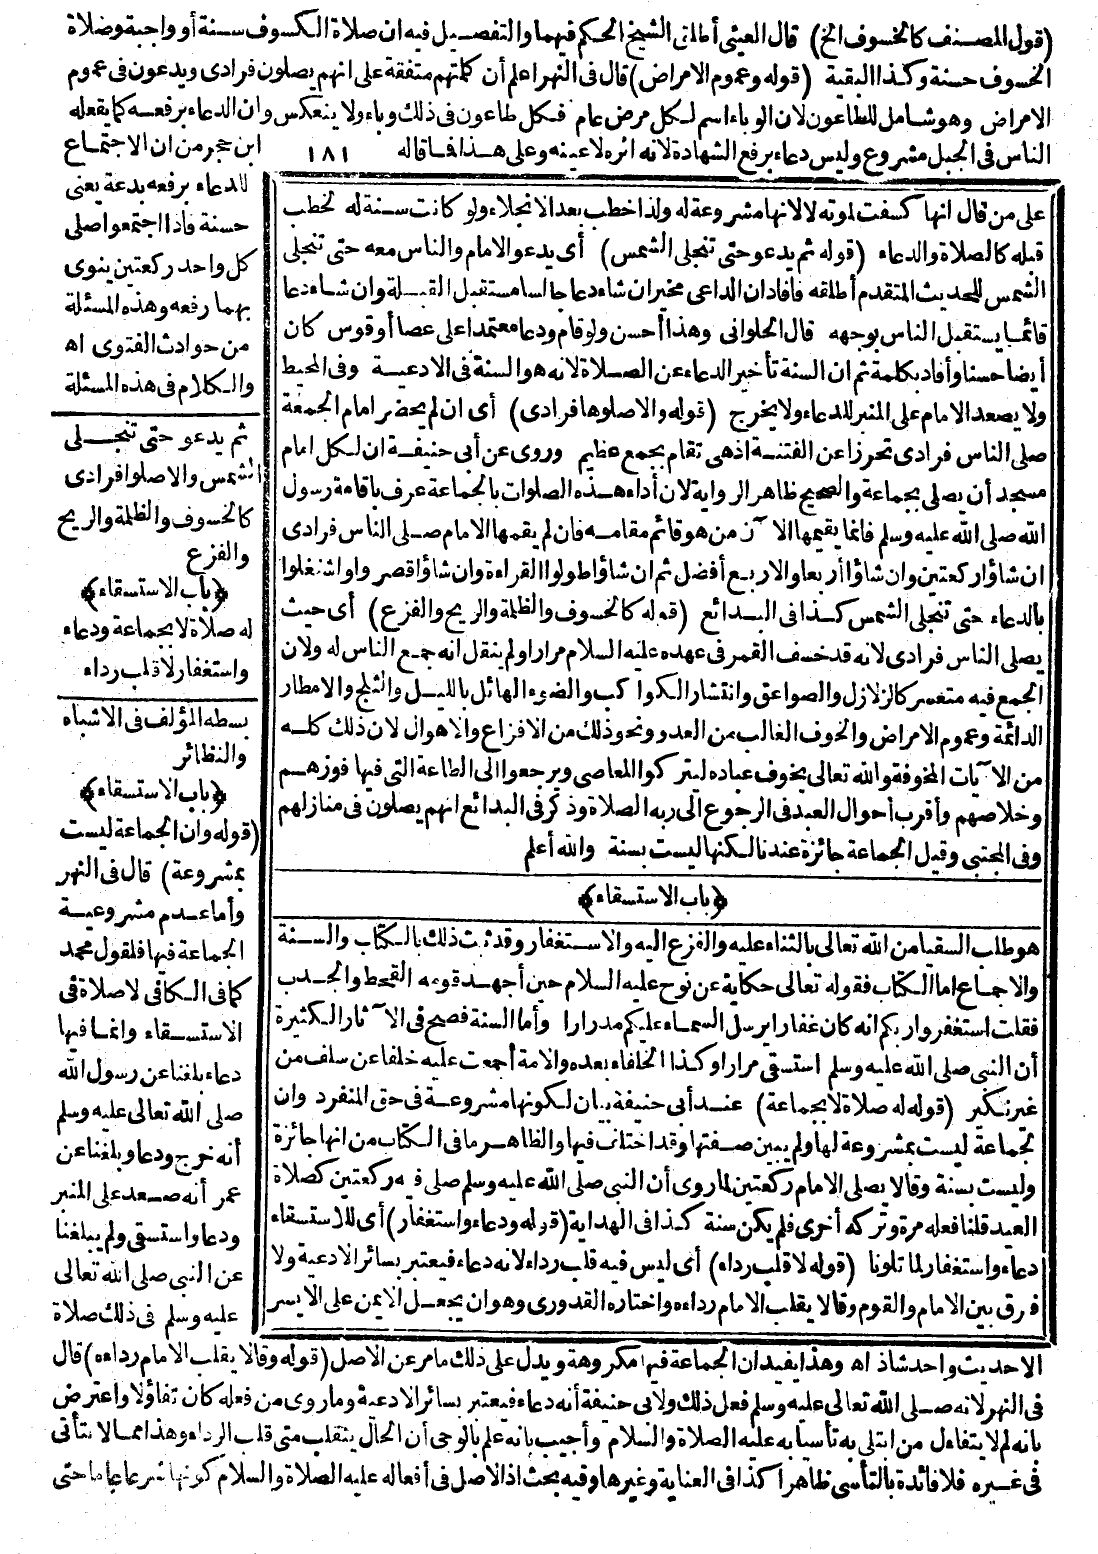 (قول المصنف كالخسوف الخ) قال العيني أطلق الشيخ الحكم فيهما والتفصيل فيه ان صلاة الكسوف سنة أو واجبة وصلاة
الخسوف حسنة وكذا البقية (قوله وعموم الامراض) قال فى النهر اعلم أن كلمتهم متفقة على انهم يصلون فرادى ويدعون فى عموم
الامراض وهو شامل للطاعون لان الوباء اسم لكل مرض عام فكل طاعون فى ذلك وباء ولا ينعكس وان الدعاء برفعه كما يفعله
الناس فى الجبل مشروع وليس دعاء برفع الشهادة لانه اثره لا عينه وعلى هذا فما قاله
١٨١
ابن حجر من ان الاجتماع
للدعاء برفعه بدعة يعنى
حسنة فاذا اجتمعوا صلى
كل واحد ركعتين ينوى
بهما رفعه وهذه المسئلة
من حوادث الفتوى اه
والكلام فى هذه المسئلة
على من قال انها كسفت لموته لا لانها مشروعة له ولذا خطب بعد الانجلاء ولو كانت سنة له لخطب
قبله كالصلاة والدعاء (قوله ثم يدعو حتى تنجلى الشمس) أى يدعو الامام والناس معه حتى تنجلى
الشمس للحديث المتقدم أطلقه فأفاد ان الداعى مخير ان شاء دعا جالسا مستقبل القبلة وان شاء دعا
قائما يستقبل الناس بوجهه قال الحلوانى وهذا أحسن ولو قام ودعا معتمدا على عصا أو قوس كان
أيضا حسنا وأفاد بكلمة ثم ان السنة تأخير الدعاء عن الصلاة لانه هو السنة فى الادعية وفى المحيط
ولا يصعد الامام على المنبر للدعاء ولا يخرج (قوله والا صلوها فرادى) أى ان لم يحضر امام الجمعة
صلى الناس فرادى تحرزا عن الفتنة اذ هى تقام بجمع عظيم وروى عن أبى حنيفة ان لكل امام
مسجد أن يصلى بجماعة والصحيح ظاهر الرواية لان أداء هذه الصلوات بالجماعة عرف باقامة رسول
الله صلى الله عليه وسلم فانما يقيمها الآن من هو قائم مقامه فان لم يقمها الامام صلى الناس فرادى
ان شاؤا ركعتين وان شاؤا أربعا والاربع أفضل ثم ان شاؤا طولوا القراءة وان شاؤا قصروا واشتغلوا
بالدعاء حتى تنجلى الشمس كذا فى البدائع (قوله كالخسوف والظلمة والريح والفزع) أى حيث
يصلى الناس فرادى لانه قد خسف القمر فى عهده عليه السلام مرارا ولم ينقل انه جمع الناس له ولان
الجمع فيه متعسر كالزلازل والصواعق وانتشار الكواكب والضوء الهائل بالليل والثلج والامطار
الدائمة وعموم الامراض والخوف الغالب من العدو ونحو ذلك من الافزاع والاهوال لان ذلك كله
من الآيات المخوفة والله تعالى يخوف عباده ليتركوا المعاصى ويرجعوا الى الطاعة التى فيها فوزهم
وخلاصهم وأقرب أحوال العبد فى الرجوع الى ربه الصلاة وذكر فى البدائع انهم يصلون فى منازلهم
وفى المجتبى وقيل الجماعة جائزة عندنا لكنها ليست بسنة والله أعلم
﴿باب الاستسقاء﴾
هو طلب السقيا من الله تعالى بالثناء عليه والفزع اليه والاستغفار وقد ثبت ذلك بالكتاب والسنة
والاجماع اما الكتاب فقوله تعالى حكاية عن نوح عليه السلام حين أجهد قومه القحط والجدب
فقلت استغفروا ربكم انه كان غفارا يرسل السماء عليكم مدرارا وأما السنة فصح فى الآثار الكثيرة
أن النبى صلى الله عليه وسلم استسقى مرارا وكذا الخلفاء بعده والامة أجمعت عليه خلفا عن سلف من
غير نكير (قوله له صلاة لا بجماعة) عند أبى حنيفة بيان لكونها مشروعة فى حق المنفرد وان
الجماعة ليست بمشروعة لها ولم يبين صفتها وقد اختلف فيها والظاهر ما فى الكتاب من انها جائزة
وليست بسنة وقالا يصلى الامام ركعتين لما روى أن النبى صلى الله عليه وسلم صلى فيه ركعتين كصلاة
العيد قلنا فعله مرة وتركه أخرى فلم يكن سنة كذا فى الهداية (قوله ودعاء واستغفار) أى للاستسقاء
دعاء واستغفار لما تلونا (قوله لا قلب رداء) أى ليس فيه قلب رداء لانه دعاء فيعتبر بسائر الادعية ولا
فرق بين الامام والقوم وقالا يقلب الامام رداءه واختاره القدورى وهو ان يجعل الايمن على الايسر
ثم يدعو حتى تنجلى
الشمس والا صلوا فرادى
كالخسوف والظلمة والريح
والفزع
﴿باب الاستسقاء﴾
له صلاة لا بجماعة ودعاء
واستغفار لا قلب رداء
بسطه المؤلف فى الاشباه
والنظائر
﴿باب الاستسقاء﴾
(قوله وان الجماعة ليست
بمشروعة) قال فى النهر
وأما عدم مشروعية
الجماعة فيها فلقول محمد
كما فى الكافى لا صلاة فى
الاستسقاء وانما فيها
دعاء بلغنا عن رسول الله
صلى الله تعالى عليه وسلم
أنه خرج ودعا وبلغنا عن
عمر أنه صعد على المنبر
ودعا واستسقى ولم يبلغنا
عن النبى صلى الله تعالى
عليه وسلم فى ذلك صلاة
الا حديث واحد شاذ اه وهذا يفيد ان الجماعة فيها مكروهة ويدل على ذلك ما مر عن الاصل (قوله وقالا يقلب الامام رداءه) قال
فى النهر لانه صلى الله تعالى عليه وسلم فعل ذلك ولابى حنيفة أنه دعاء فيعتبر بسائر الادعية وما روى من فعله كان تفاؤلا واعترض
بانه لم لا يتفاءل من ابتلى به تأسيا به عليه الصلاة والسلام وأجيب بانه علم بالوحى أن الحال ينقلب متى قلب الرداء وهذا مما لا يتأتى
فى غيره فلا فائدة بالتأسى ظاهرا كذا فى العناية وغيرها وفيه بحث اذ الاصل فى أفعاله عليه الصلاة والسلام كونها شرعا عاما حتى